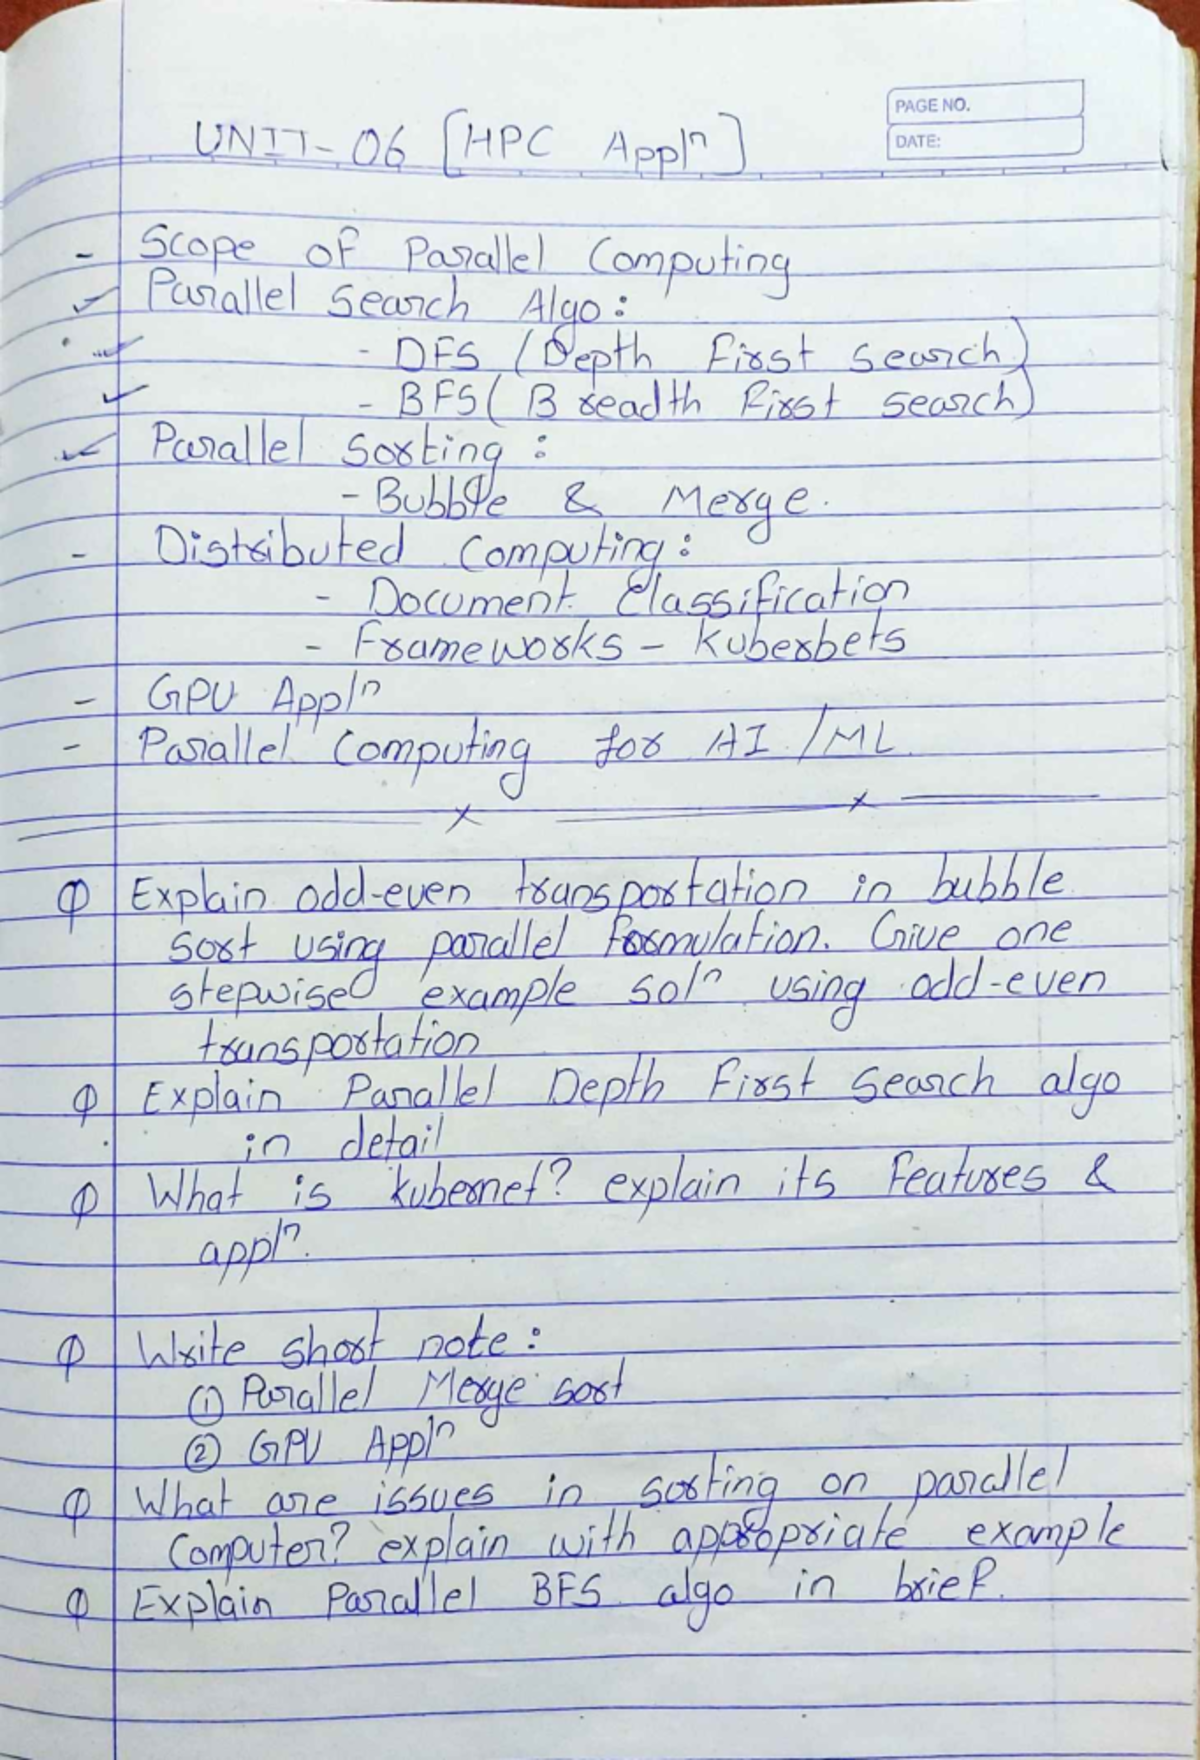 PAGE NO.
DATE:
UNIT-06 [HPC Appln]
- Scope of Parallel Computing
✓ Parallel Search Algo:
✓ - DFS (Depth First Search)
✓ - BFS (Breadth First search)
✓ Parallel Sorting:
- Bubble & Merge.
- Distributed Computing:
- Document Classification
- Frameworks - Kuberbets
- GPU Appln
- Parallel Computing for AI/ML
Q Explain odd-even transportation in bubble
sort using parallel formulation. Give one
stepwise example soln using odd-even
transportation
Q Explain Parallel Depth First Search algo
in detail
Q What is kubernet? explain its features &
appln.
Q Write short note:
① Parallel Merge sort
② GPU Appln
Q What are issues in sorting on parallel
Computer? explain with appropriate example
Q Explain Parallel BFS algo in brief.